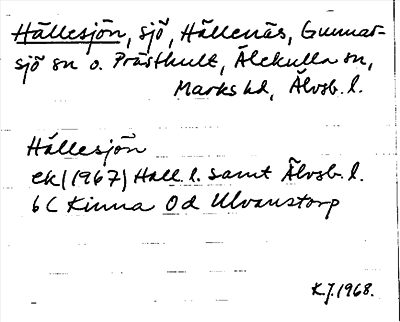 Hällesjön, sjö, Hällenäs, Gunnar-
sjö sn o. Prästhult, Älekulla sn,
Marks hd, Älvsb. l.
Hällesjön
ek (1967) Hall. l. samt Älvsb. l.
6 C Kinna 0 d Ulvanstorp
K.J. 1968.